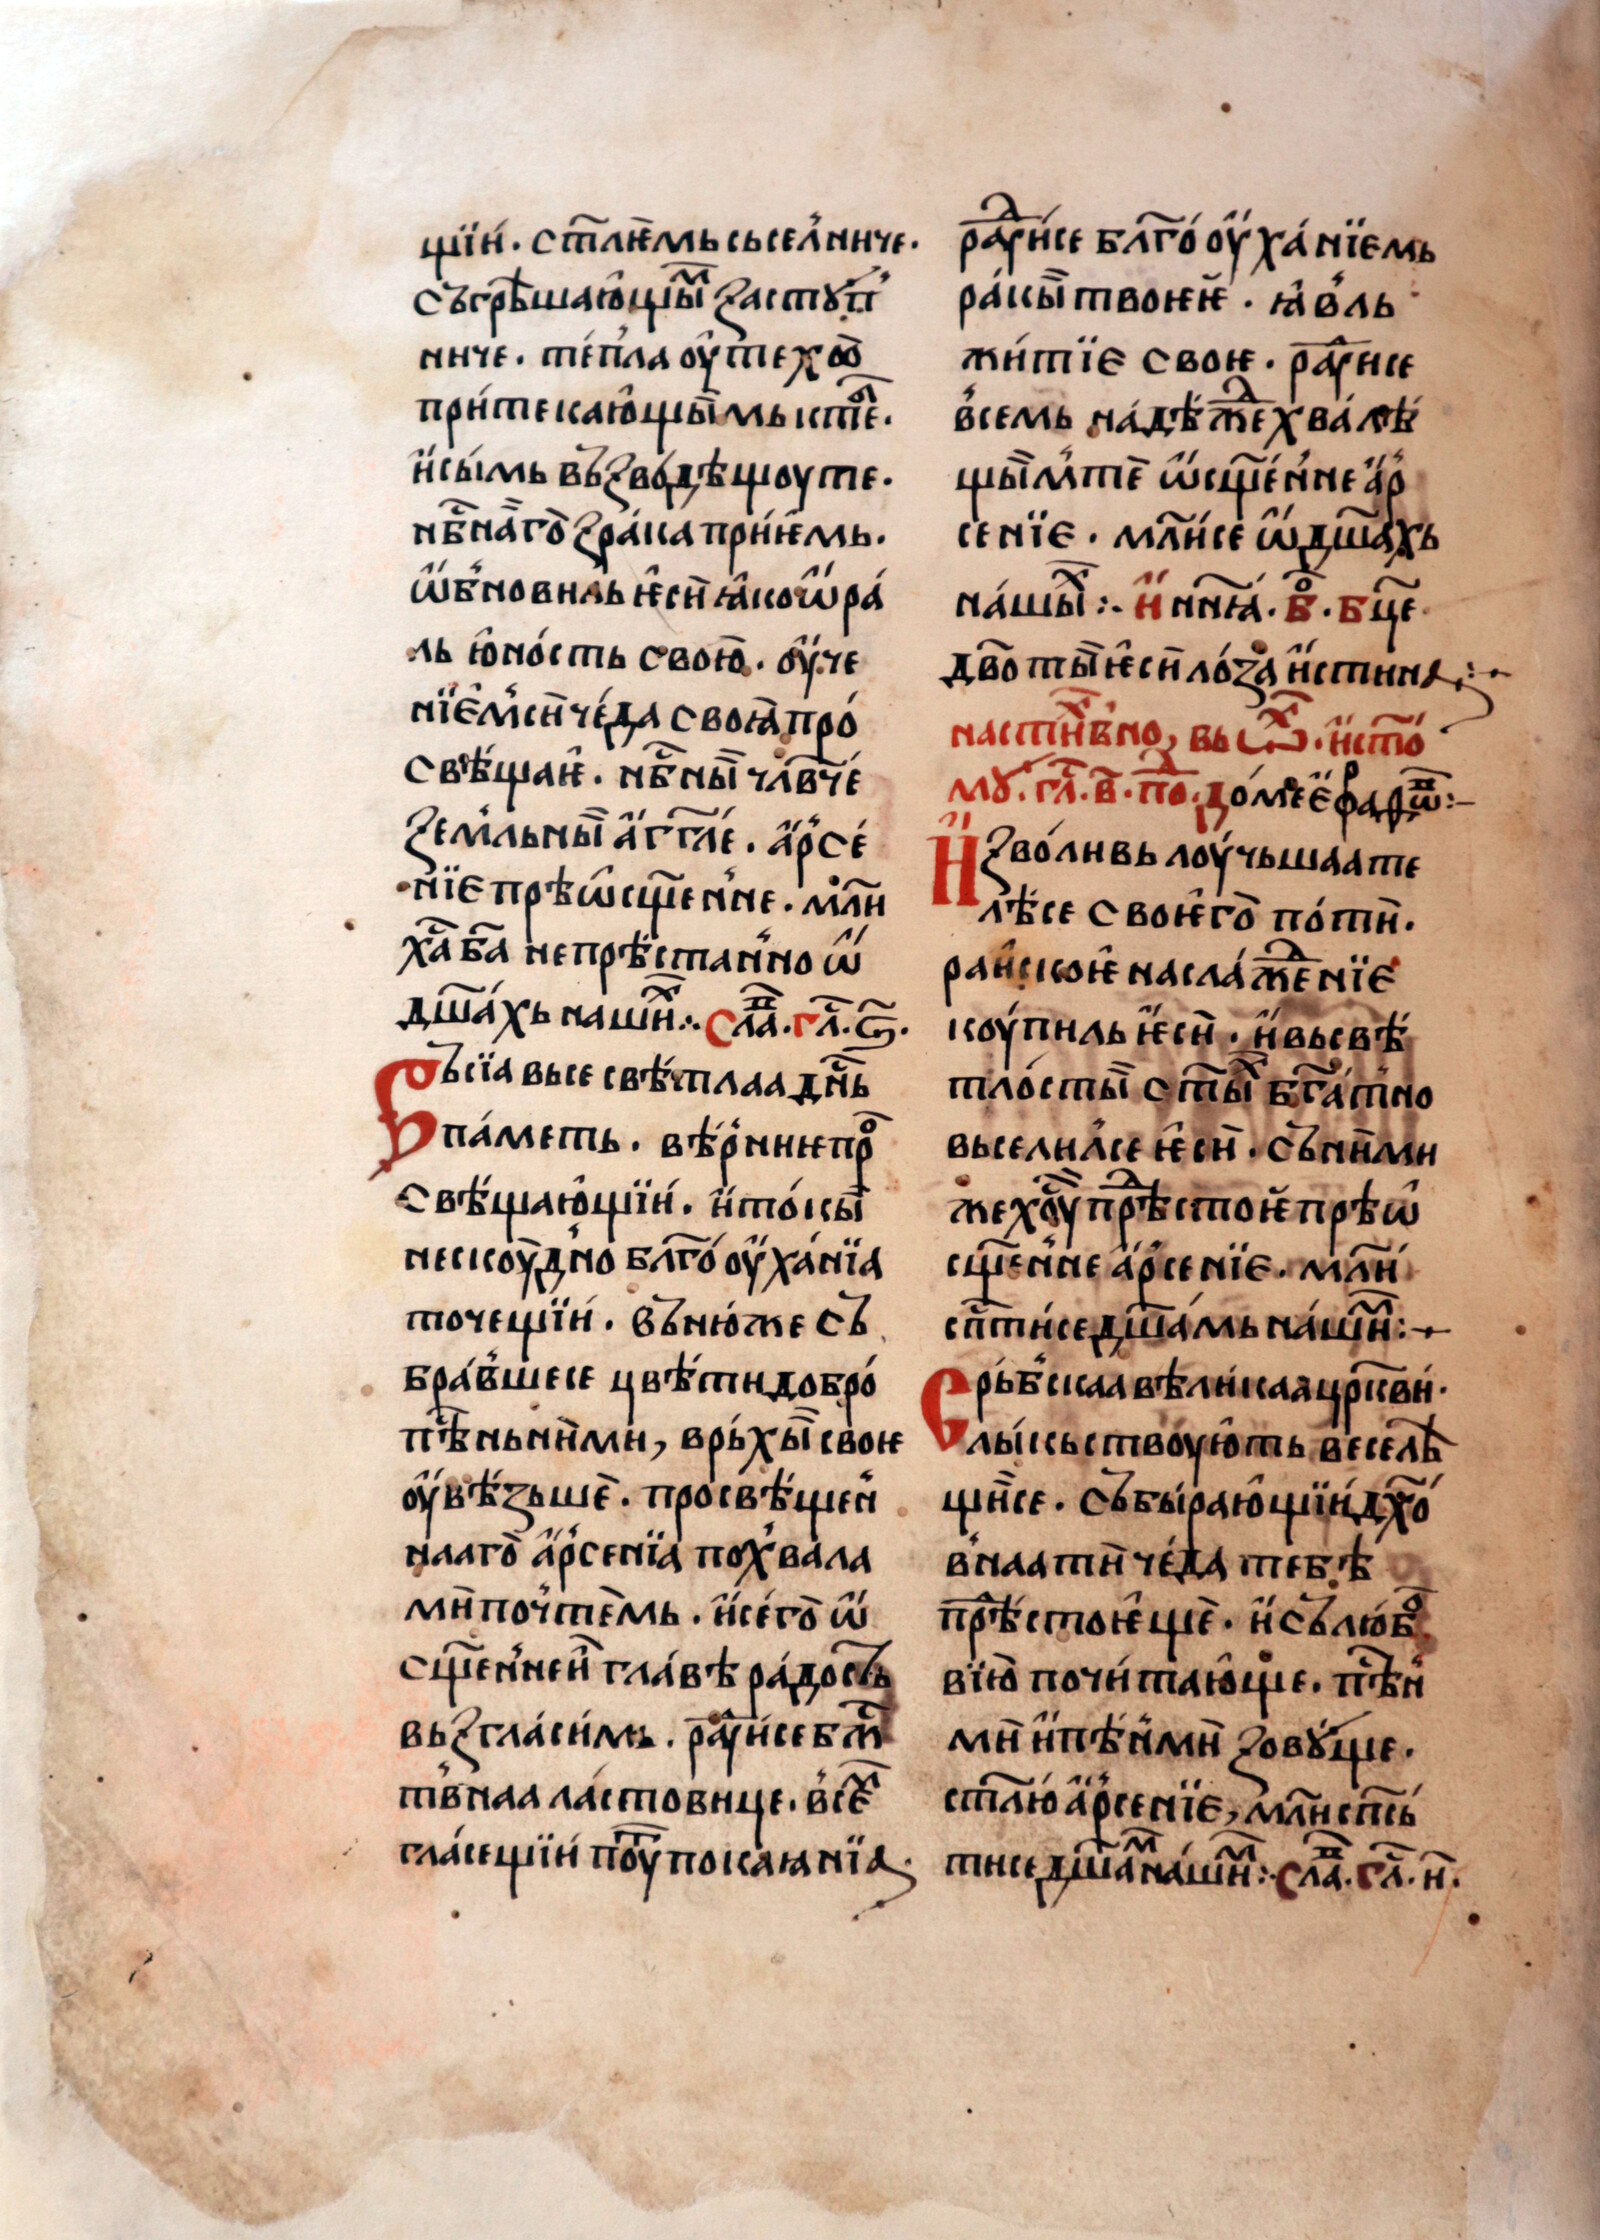 щїи́. ст҃лѥ́мь сьсел̾ниче.
съгрѣ́шаю̂щы̏ᲅ застꙋп̾
ниче. те́п̾ла ᲂу̂теходⷣ
при́текаю̂щы̏мь ктебѣ.
и҆сы́мь въ̀зво́дѣщоуте.
нб҃на̀го̀ зра́ка прїи́ѥ́мь.
ѡ҆б̾новиль ѥ҆сѝ ꙗ҆ко ѡ҆ра́
ль ю҆но́сть свою̀. ᲂу҆че
нїе҆м̾сѝ че́да своꙗ̀ про́
свѣ́щаѥ̂. нбⷭ҇ны̏ чл҃вч҃е́
зем̾льны̏ а҆гг҃ле́. а҆р̾се́
нїе прѣѡ̂сщ҃ен̾не. мл҃и
хⷭ҇а б҃а непрѣ́стан̾но ѡ҆
дш҃а́хь нашиⷯ:. сла́ⷡ. гл҃. ѕ҃.
Въсїа вьсе свѣ́тлаа дн҃ь
па́меть. вѣ́р̾ниѥ проⷭ
свѣ́щаю̂щїи́. и҆то́кы̏
нескоу́д̾но бл҃го́ᲂу҆ха́нїа
точещїи́. въню́же съ
бра́в̾шесе цвѣ́ти добро́
пѣⷭ҇ньни̏ми, врь́хы̏ своѥ
ᲂу҆вѣ́зьше̏. просвѣ́щен̾
нааго̀ а҆р̾сенїа пох̾вала
мѝ поч̾те̏мь. и҆се́го̀ ѡ҆
сщ҃ен̾неѝ гла́вѣ ра́дость
вьзгла́симь. раⷣꙋи́се бжⷭ
тв̾наа ла́стовице. в̾сѣⷨ
гла́сещїи́ поуⷮ покаꙗнїа.
раⷣꙋи́се бл҃го́ᲂу҆ха́нїемь
ра́кы̏ твоѥѥ̏. ꙗ҆в̾ль
жи́тїе своѥ. раⷣꙋисе
в̾семь на́дѣжⷣе хва́лѣ́
щы̏м̾те̏ ѡ҆сщ҃ен̾не а҆р̾
сенїе. мл҃и́се ѡ҆дш҃а́хь
на́шыⷯ:. и҆ нн҃ꙗ́. бⷪ҇. бц҃е.
дв҃о ты̏ ѥ҆сѝ ло́за и҆стинаꙗ:~
настиⷯвно, вь сⷯт. и҆ст҃о́
мꙋ. гл҃. в҃. поⷣ. до́ме е҆ф̾раѳⷡ:~
И҆зво́ливь лоу́чьшаа те
лѣ́се своѥ́го̀ по́тѝ.
раи̂скоѥ̂ насла́жⷣенїе
коу́пиль ѥ҆сѝ. и҆ вьсвѣ́
тло́сты̏ ст҃ы̏ⷯ бг҃а́т̾но
вьселил̾се ѥ҆сѝ. съни̏ми
же хоⷭу̀ прⷣѣстоѥ̏ прѣѡ̂
сщ҃ен̾не а҆р̾сенїе. мл҃и́
сп҃ти́се дш҃а́мь на́шиⷨ:~
Срь́б̾скаа вѣли́каа цр҃кви.
лы́кьствоую́ть веселѣ
щѝсе. събы́раю̂щїи́ дх҃о́
в̾наа тѝ че́да тебѣ
прⷣѣ́стоѥ̂ще̏. и҆ съ лю́боⷡ
вїю̀ почи́таю̂ще. пѣⷭн̾
мѝ и҆пѣ́н̾мѝ зовꙋ́ще.
ст҃лю́ а҆р̾сенїе, мл҃и сп҃сь́
тисе дш҃аⷨ на́шиⷨ:. сла́ⷡ. гл҃. и҃.